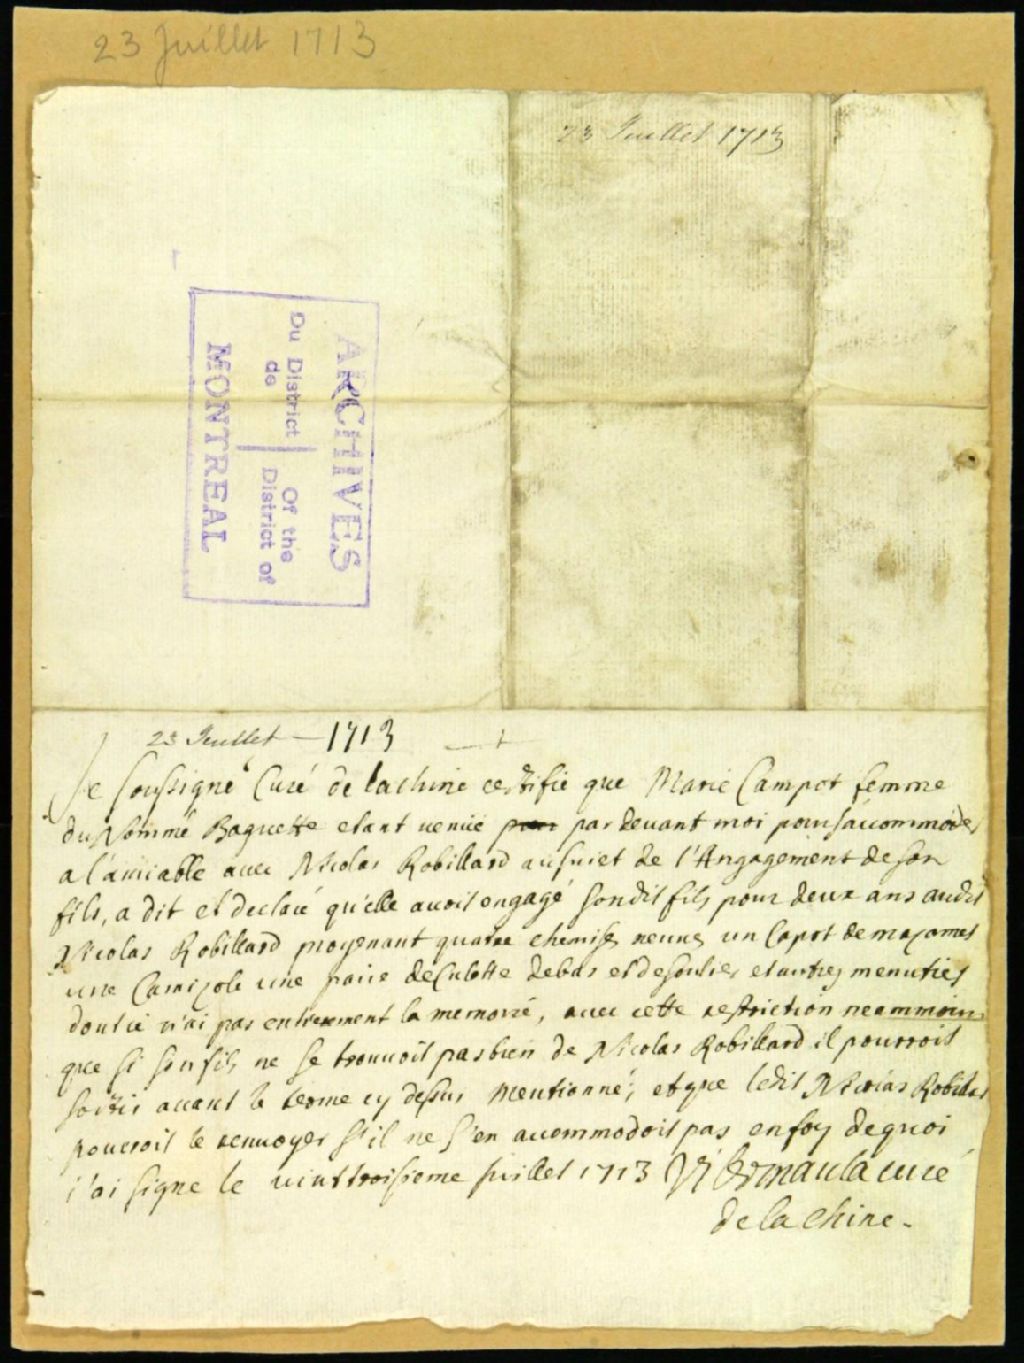 23 Juillet 1713
23 Juillet 1713
ARCHIVES
Du District Of the
de District of
MONTREAL
23 Juillet — 1713
Je Soussigné Curé de lachine certifie que Marie Campot femme
du Nommé Baguette etant venüe par devant moi pour s'accommoder
a l'amiable avec Nicolas Robillard au sujet de l'Angagement de son
fils, a dit et declaré qu'elle avoit engagé son dit fils pour deux ans audit
Nicolas Robillard moyenant quatre chemises neuves un Capot de mazamet
une Camizole une paire de Culotte de bas et de soulies et autres menuties
dont je n'ai pas entierement la memoire, avec cette restriction neammoins
que si son fils ne se trouvoit pas bien de Nicolas Robillard il pourroit
sortir avant le terme cy dessus mentionné; et que ledit Nicolas Robillard
pourroit le renvoyer s'il ne s'en accommodoit pas en foy de quoi
j'ai signe le vint troisieme juillet 1713 curé
de la Chine.